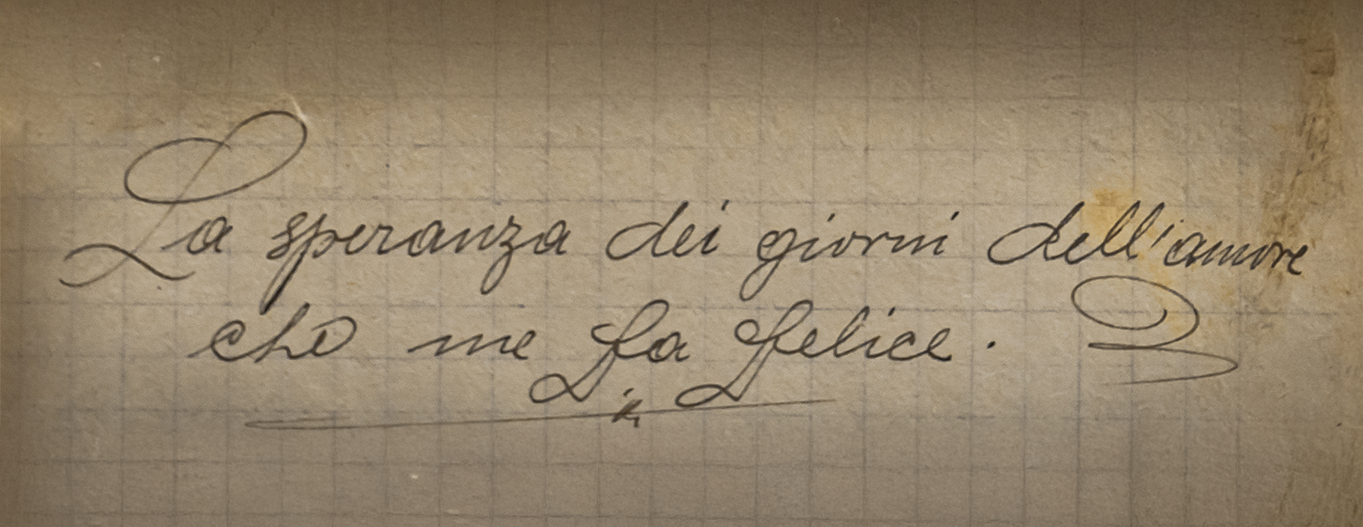 La speranza dei giorni dell'amore
che me fa felice.